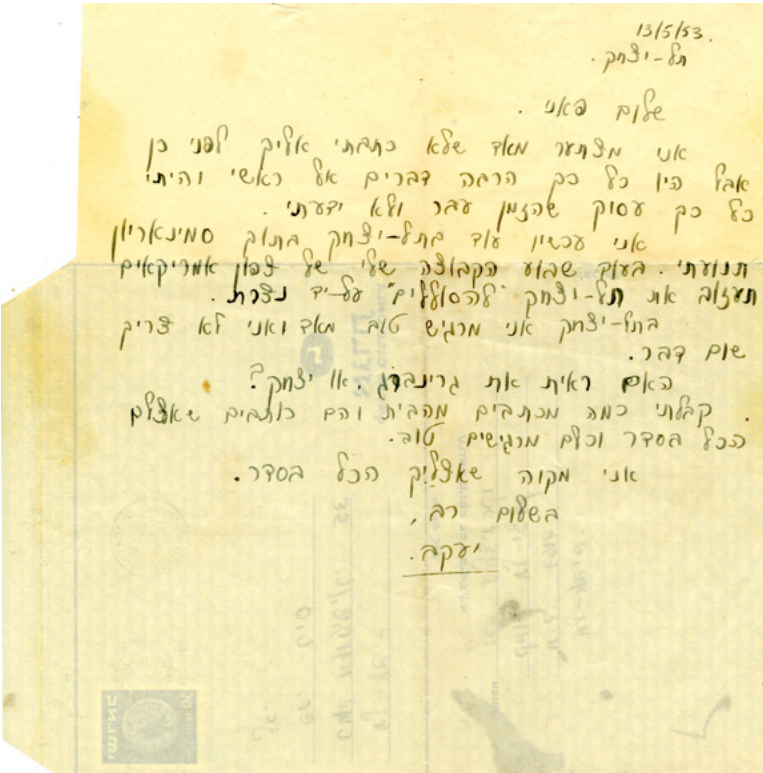 13/5/53.
תל-יצחק.
שלום פאני.
אני מצתער מאד שלא כתבתי אליך לפני כן
אבל היו כל כך הרבה דברים אל ראשי והיתי
כל כך עסוק שהזמן עבר ולא ידעתי.
אני עכשיו עוד בתל-יצחק בתוך סמינאריון
תנועתי. בעוד שבוע הקבוצה שלי של צפון אמריקאים
תעזוב את תל-יצחק "להסוללים" על-יד נצרת.
בתל-יצחק אני מרגיש טוב מאד ואני לא צריך
שום דבר.
האם ראית את גרינברג, או יצחק?
קבלתי כמה מכתבים מהבית והם כותבים שאצלם
הכל בסדר וכלם מרגישים טוב.
אני מקוה שאצליך הכל בסדר.
בשלום רב,
יעקב.